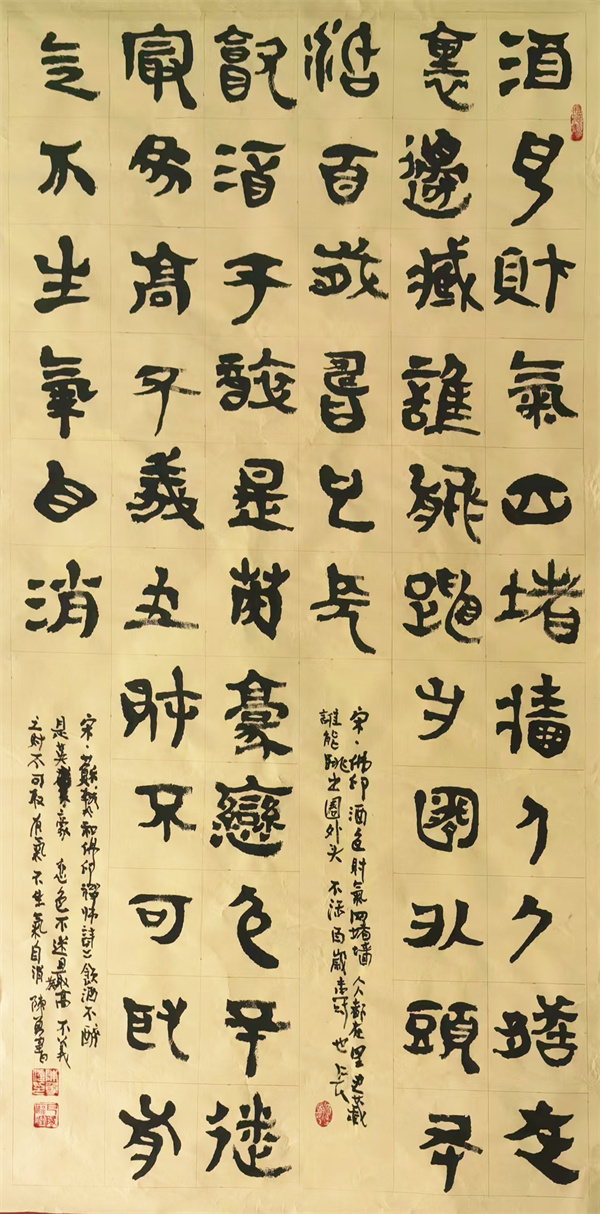 酒色財氣四堵牆人人都在
裏邊藏誰能跳出圈外頭不
活百歲壽也長
宋·佛印 酒色財氣四堵墙 人人都在里边藏
誰能跳出圈外头 不活百歲壽也长
飲酒不醉是英豪戀色不迷
最為高不義之財不可取有
气不生氣自消
宋·蘇軾和佛印禪师詩 飲酒不醉
是英豪 恋色不迷最高 不义
之財不可取 有氣不生氣自消 書